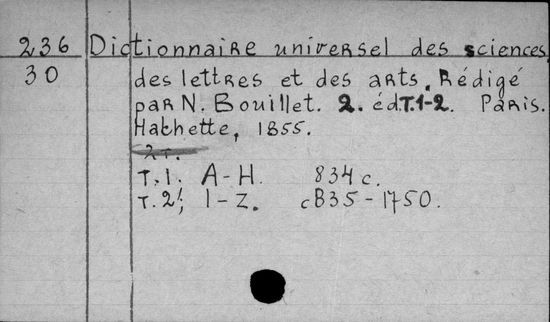 236 Dictionnaire universel des sciences,
30 des lettres et des arts. Rédigé
par N. Bouillet. 2. éd. T.1-2. Paris.
Hachette, 1855.
2 т.
т.1. A-H. 834 c.
т.2. I-Z. c 835-1750.